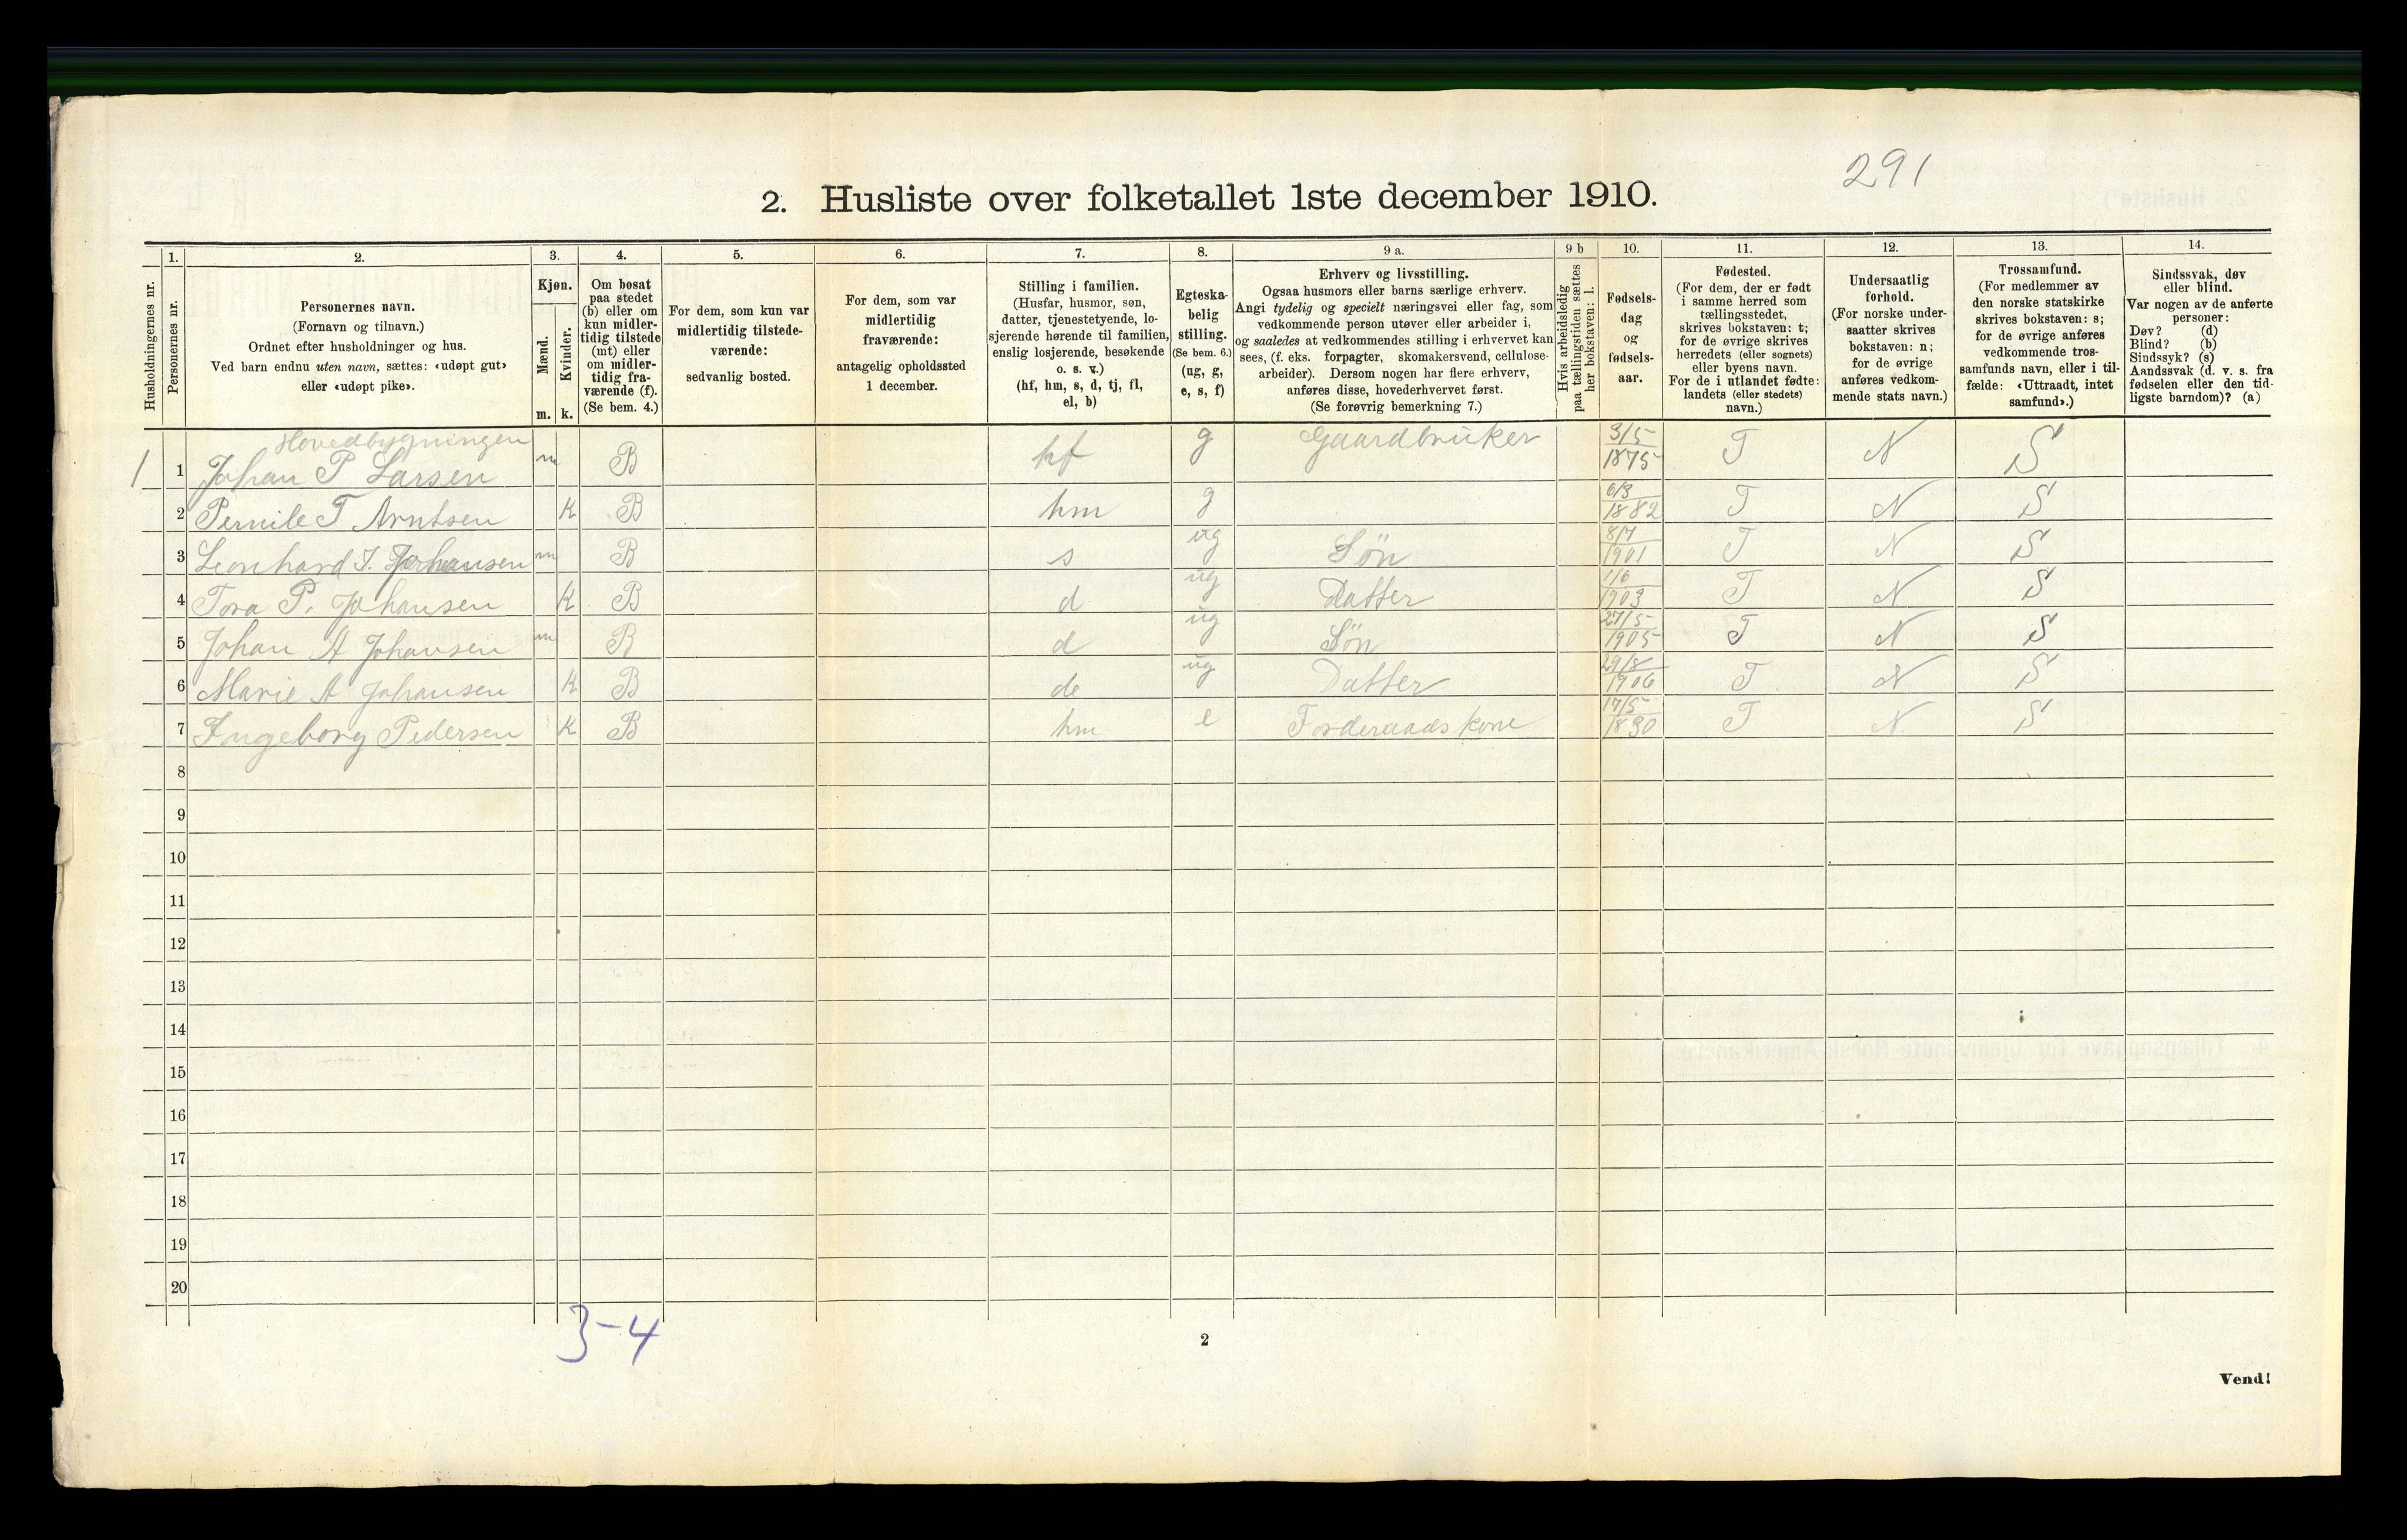 291
2. Husliste over folketallet 1ste december 1910.
Husholdningernes nr.
1.
Personernes nr.
2.
Personernes navn.
(Fornavn og tilnavn.)
Ordnet efter husholdninger og hus.
Ved barn endnu uten navn, sættes: «udøpt gut»
eller «udøpt pike».
3.
Kjøn.
Mænd.
m.
Kvinder.
k.
4.
Om bosat
paa stedet
(b) eller om
kun midler-
tidig tilstede
(mt) eller
om midler-
tidig fra-
værende (f).
(Se bem. 4.)
5.
For dem, som kun var
midlertidig tilstede-
værende:
sedvanlig bosted.
6.
For dem, som var
midlertidig
fraværende:
antagelig opholdssted
1 december.
7.
Stilling i familien.
(Husfar, husmor, søn,
datter, tjenestetyende, lo-
sjerende hørende til familien,
enslig losjerende, besøkende
o. s. v.)
(hf, hm, s, d, tj, fl,
el, b)
8.
Egteska-
belig
stilling.
(Se bem. 6.)
(ug, g,
e, s, f)
9 a.
Erhverv og livsstilling.
Ogsaa husmors eller barns særlige erhverv.
Angi tydelig og specielt næringsvei eller fag, som
vedkommende person utøver eller arbeider i,
og saaledes at vedkommendes stilling i erhvervet kan
sees, (f. eks. forpagter, skomakersvend, cellulose-
arbeider). Dersom nogen har flere erhverv,
anføres disse, hovederhvervet først.
(Se forøvrig bemerkning 7.)
9 b
Hvis arbeidsledig
paa tællingstiden sættes
her bokstaven: l.
10.
Fødsels-
dag
og
fødsels-
aar.
11.
Fødested.
(For dem, der er født
i samme herred som
tællingsstedet,
skrives bokstaven: t;
for de øvrige skrives
herredets (eller sognets)
eller byens navn.
For de i utlandet fødte:
landets (eller stedets)
navn.)
12.
Undersaatlig
forhold.
(For norske under-
saatter skrives
bokstaven: n;
for de øvrige
anføres vedkom-
mende stats navn.)
13.
Trossamfund.
(For medlemmer av
den norske statskirke
skrives bokstaven: s;
for de øvrige anføres
vedkommende tros-
samfunds navn, eller i til-
fælde: «Uttraadt, intet
samfund».)
14.
Sindssvak, døv
eller blind.
Var nogen av de anførte
personer:
Døv? (d)
Blind? (b)
Sindssyk? (s)
Aandssvak (d. v. s. fra
fødselen eller den tid-
ligste barndom)? (a)
Hovedbygningen
1 1 Johan P Larsen m B hf g Gaardbruker 3/5 1875 T N S
2 Pernile T Arntsen K B hm g 6/3 1882 T N S
3 Leonhard J. Johansen m B s ug Søn 8/7 1901 T N S
4 Tora P. Johansen K B d ug Datter 1/6 1903 T N S
5 Johan A Johansen m B d ug Søn 27/5 1905 T N S
6 Marie A Johansen K B de ug Datter 29/8 1906 T N S
7 Ingeborg Pedersen K B hm e Forderaadskone 17/5 1830 T N S
8
9
10
11
12
13
14
15
16
17
18
19
20
3-4
2
Vend!